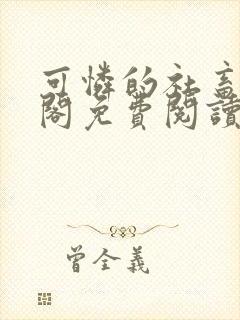 可憐的社畜
閣免費閱讀
曾全義